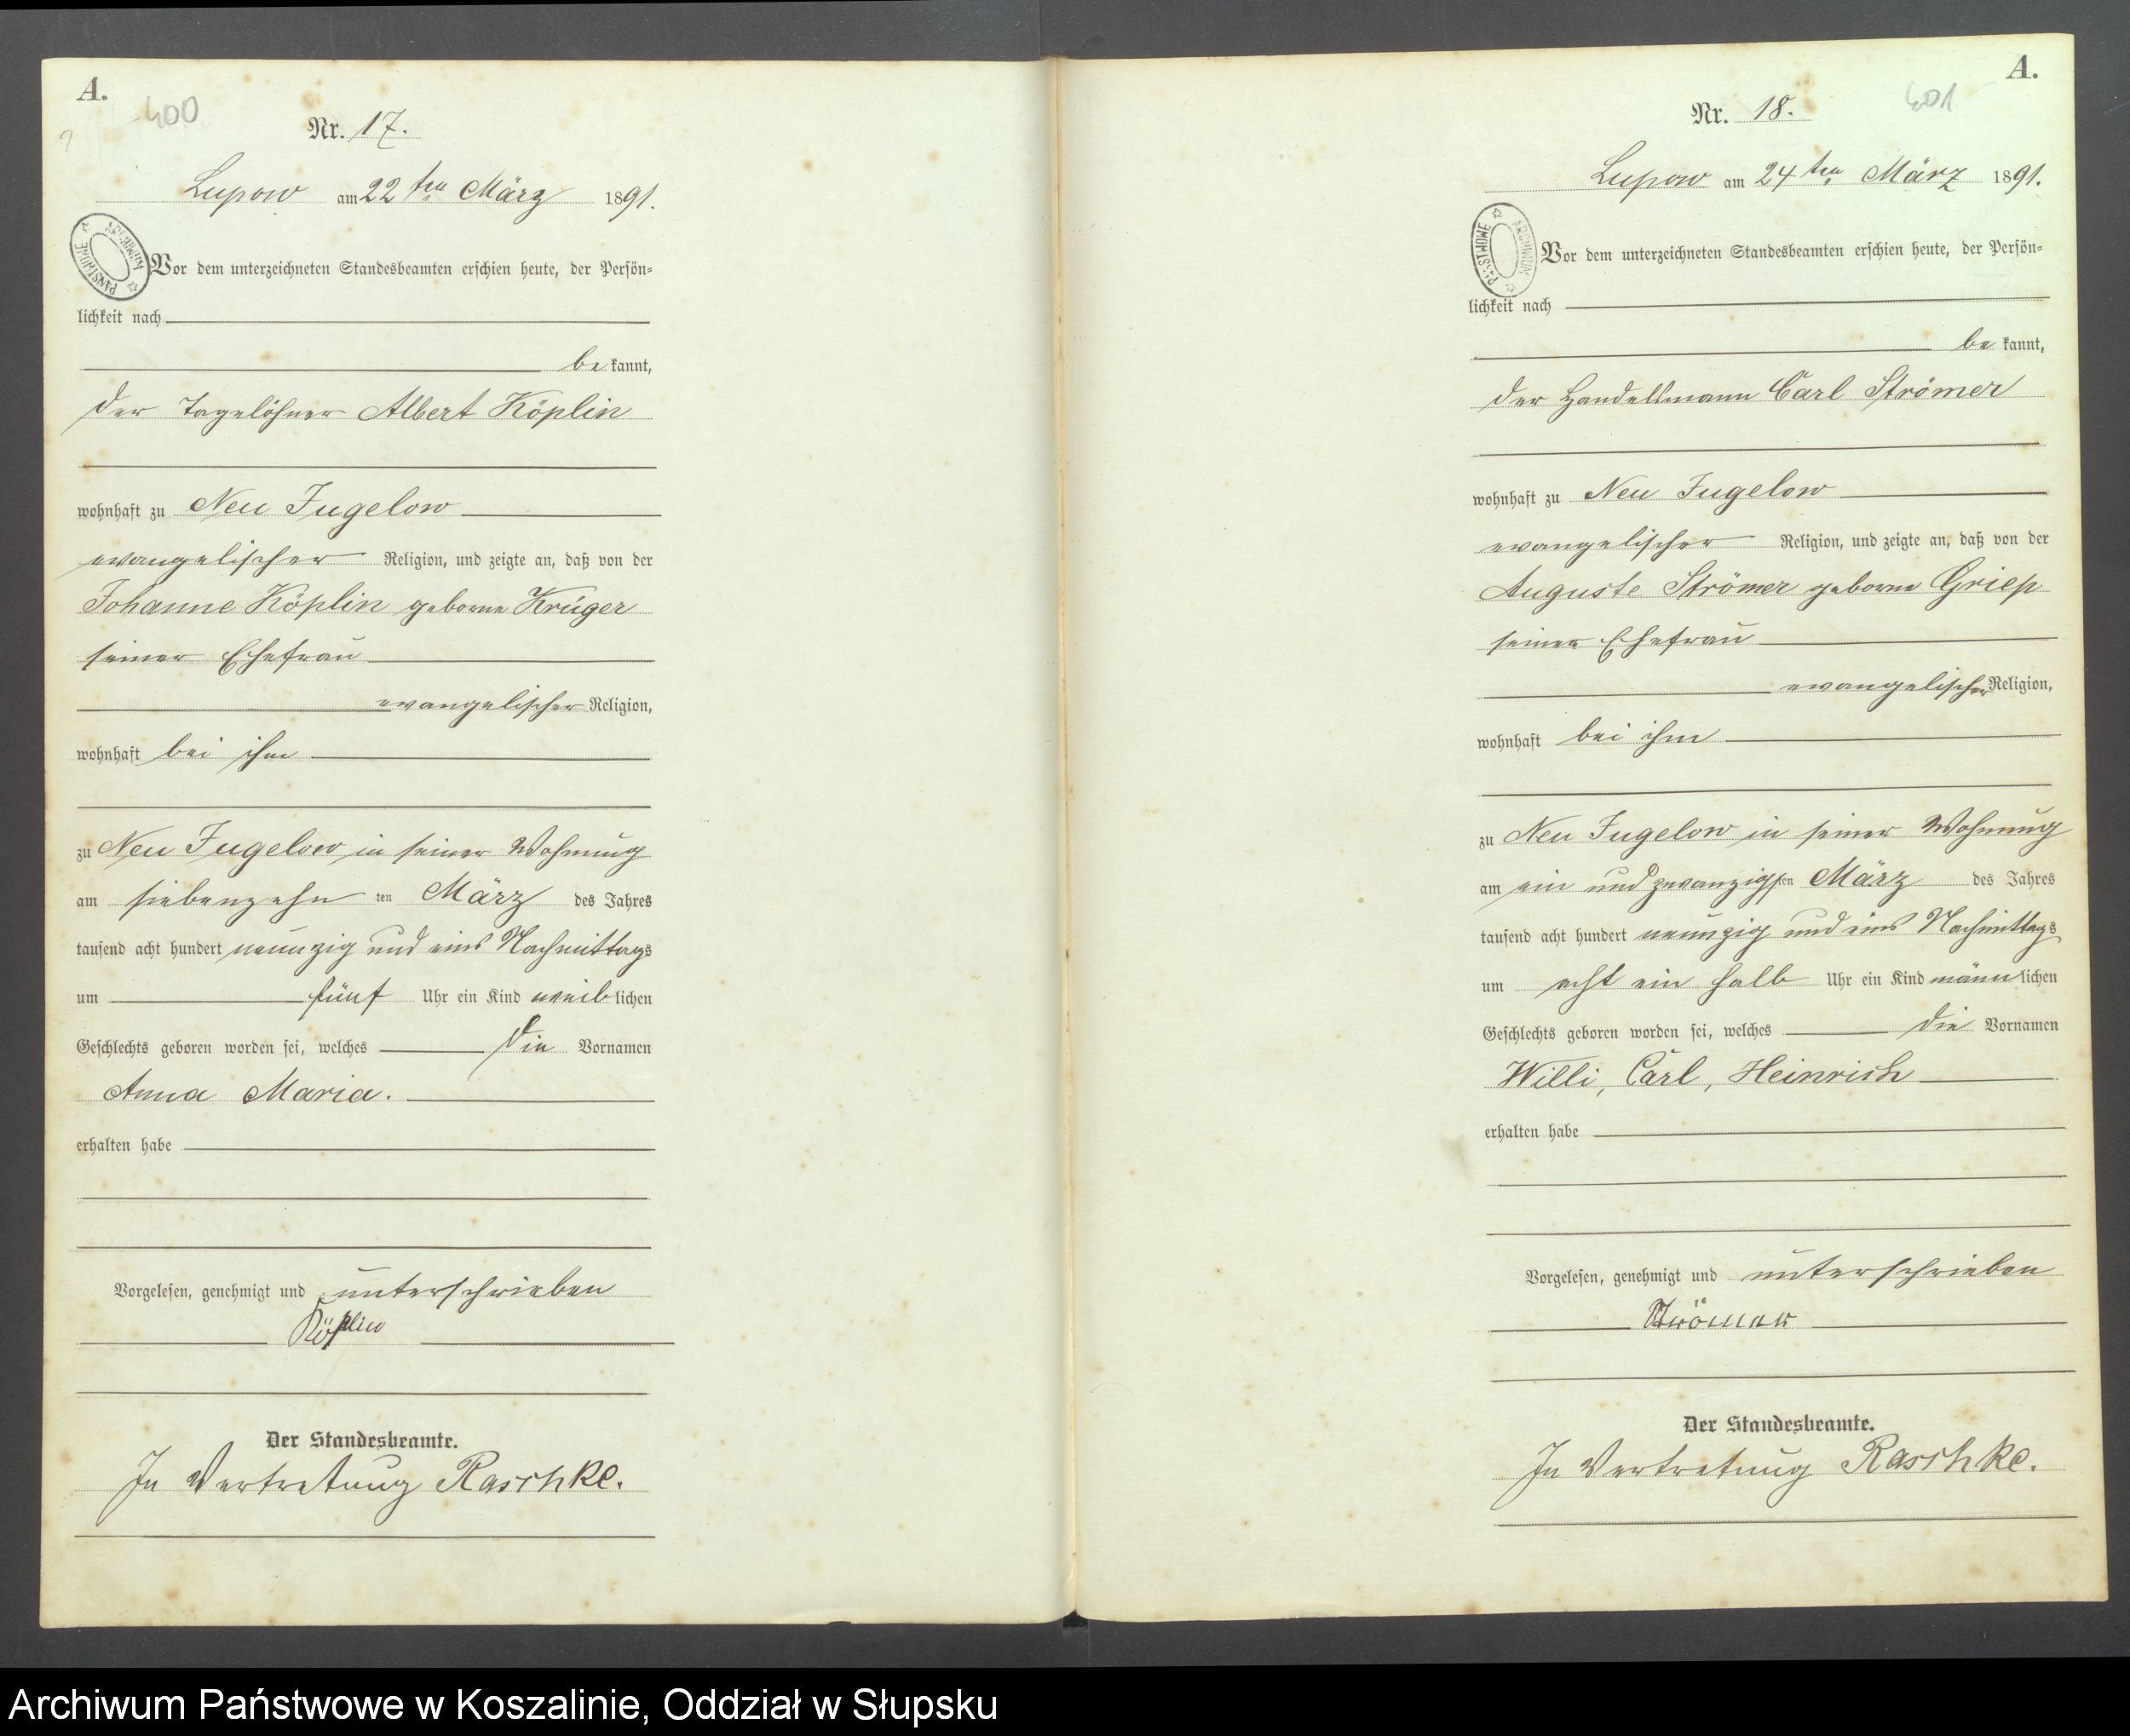 A.
400
Nr. 17.
Lupow am 22 ten März 1891.
ARCHIWUM PAŃSTWOWE
Vor dem unterzeichneten Standesbeamten erschien heute, der Persön-
lichkeit nach
be kannt,
der Tagelöhner Albert Köplin
wohnhaft zu Neu Jugelow
evangelischer Religion, und zeigte an, daß von der
Johanne Köplin geborne Krüger
seiner Ehefrau
evangelischer Religion,
wohnhaft bei ihm
zu Neu Jugelow in seiner Wohnung
am siebenzehn ten März des Jahres
tausend acht hundert neunzig und eins Nachmittags
um fünf Uhr ein Kind weib lichen
Geschlechts geboren worden sei, welches die Vornamen
Anna Maria.
erhalten habe
Vorgelesen, genehmigt und unterschrieben
Köplin
Der Standesbeamte.
In Vertretung Raschke.
A.
401
Nr. 18.
Lupow am 24 ten März 1891.
ARCHIWUM PAŃSTWOWE
Vor dem unterzeichneten Standesbeamten erschien heute, der Persön-
lichkeit nach
be kannt,
der Handelsmann Carl Strömer
wohnhaft zu Neu Jugelow
evangelischer Religion, und zeigte an, daß von der
Auguste Strömer geborne Griep
seiner Ehefrau
evangelischer Religion,
wohnhaft bei ihm
zu Neu Jugelow in seiner Wohnung
am ein und zwanzigsten März des Jahres
tausend acht hundert neunzig und eins Nachmittags
um acht ein halb Uhr ein Kind männ lichen
Geschlechts geboren worden sei, welches die Vornamen
Willi, Carl, Heinrich
erhalten habe
Vorgelesen, genehmigt und unterschrieben
Strömer
Der Standesbeamte.
In Vertretung Raschke.
Archiwum Państwowe w Koszalinie, Oddział w Słupsku